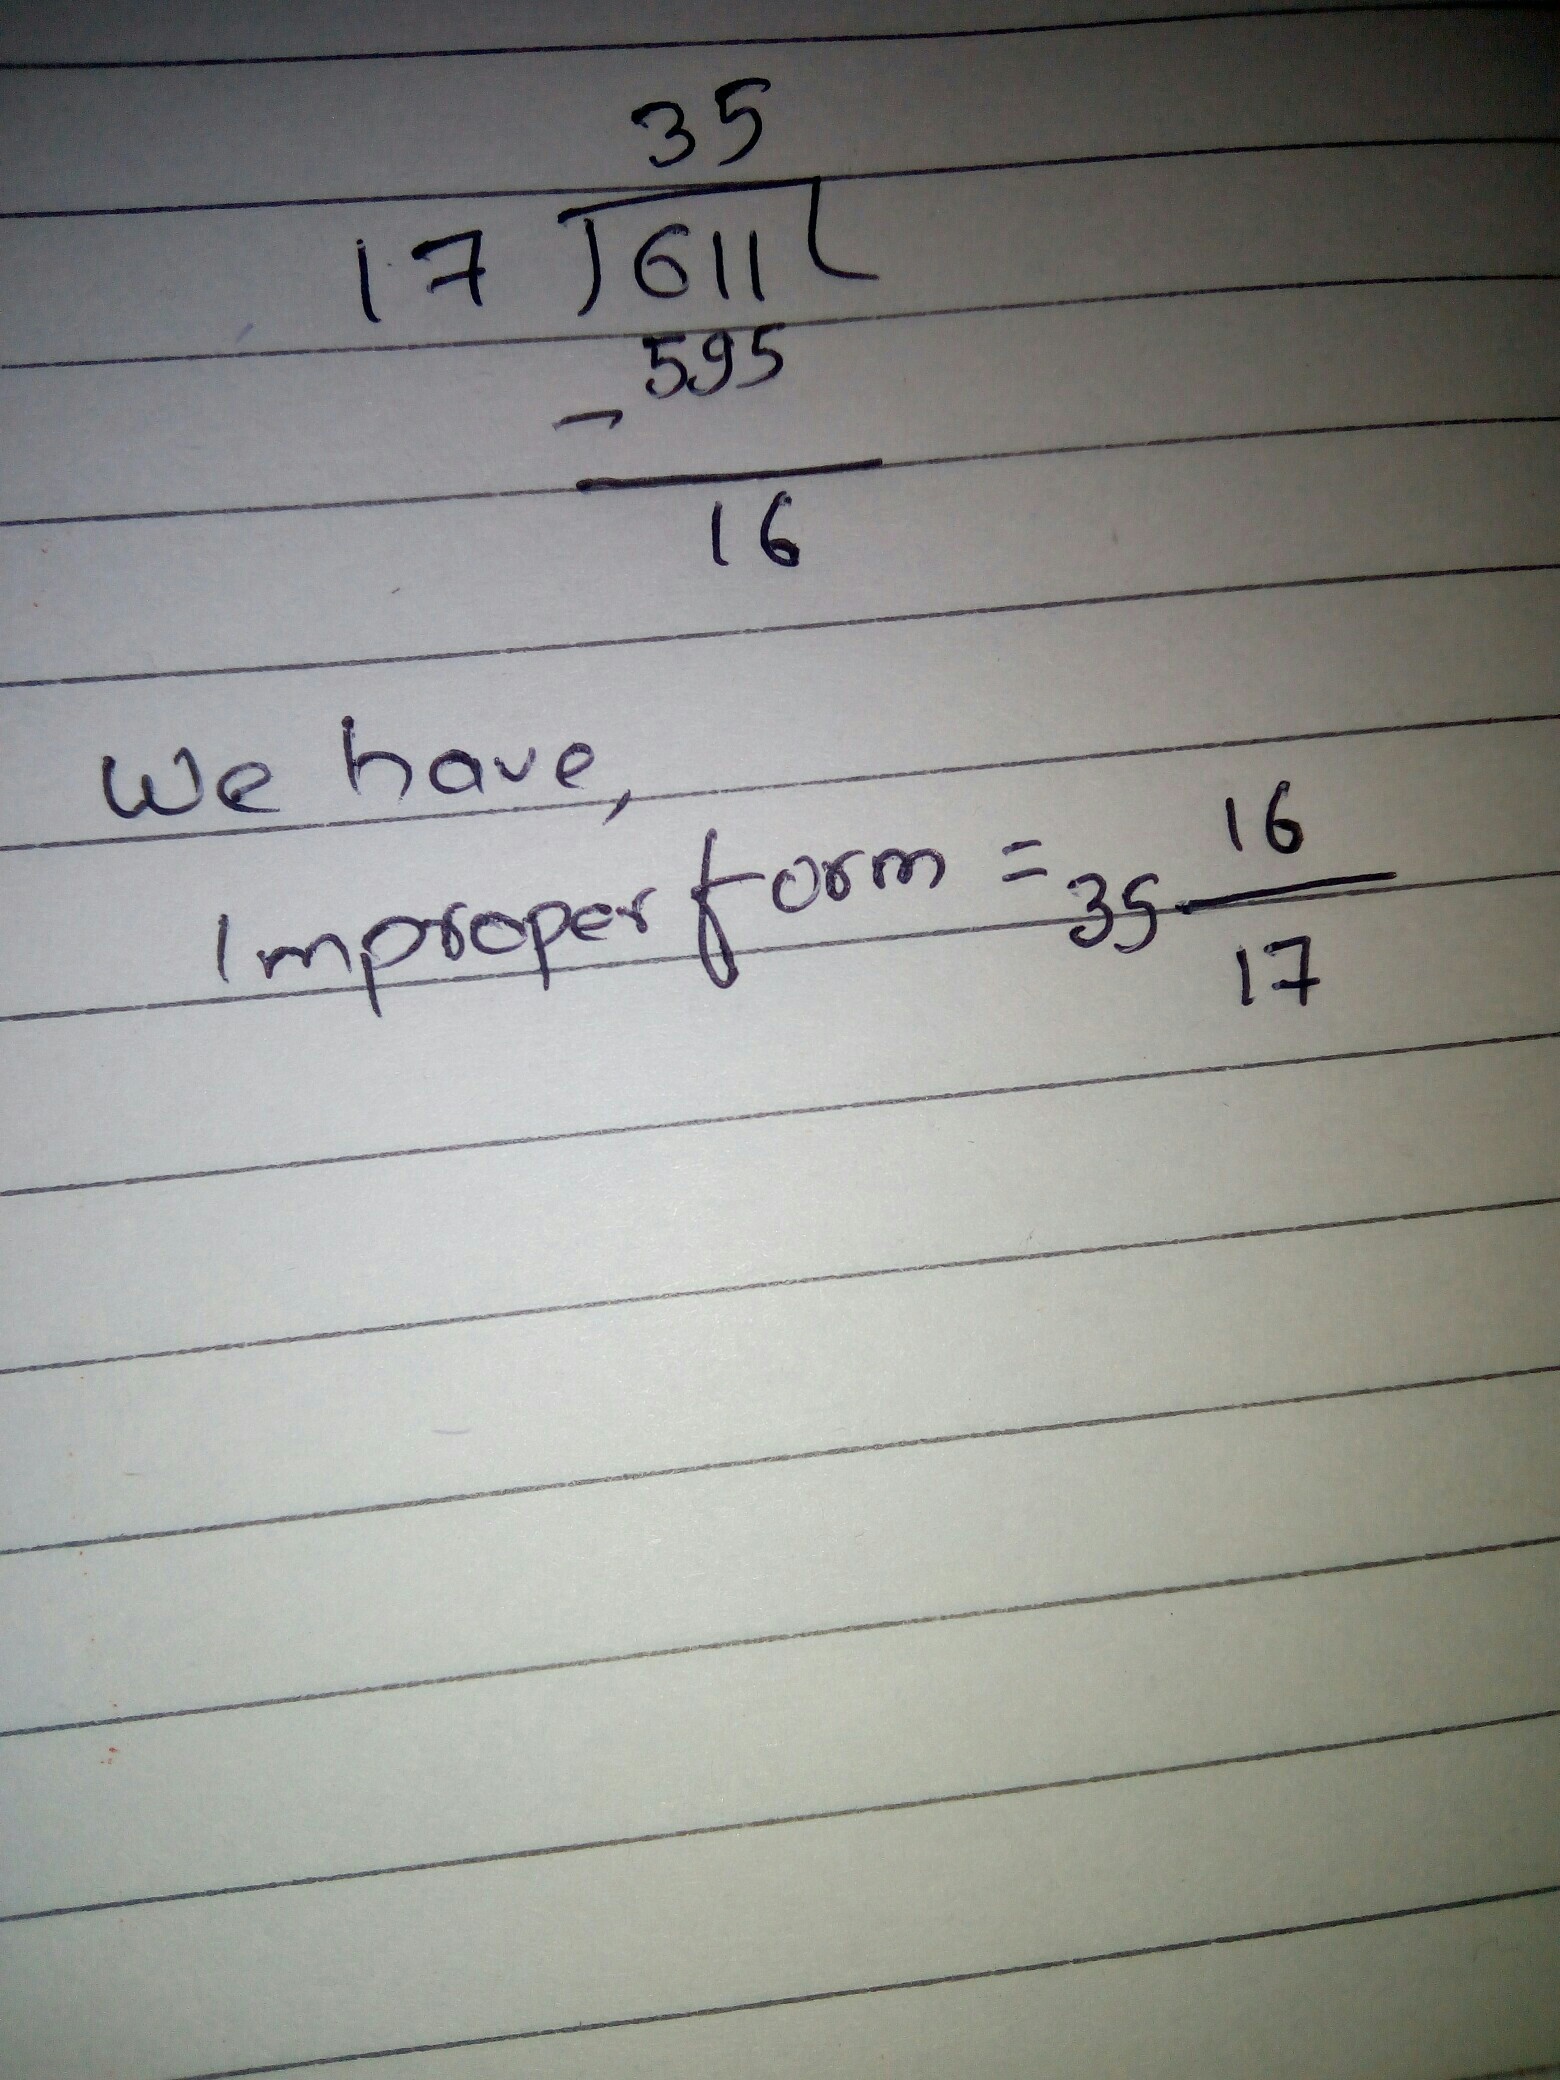 35
17 611
- 595
16
We have,
Improper form = 35 16/17